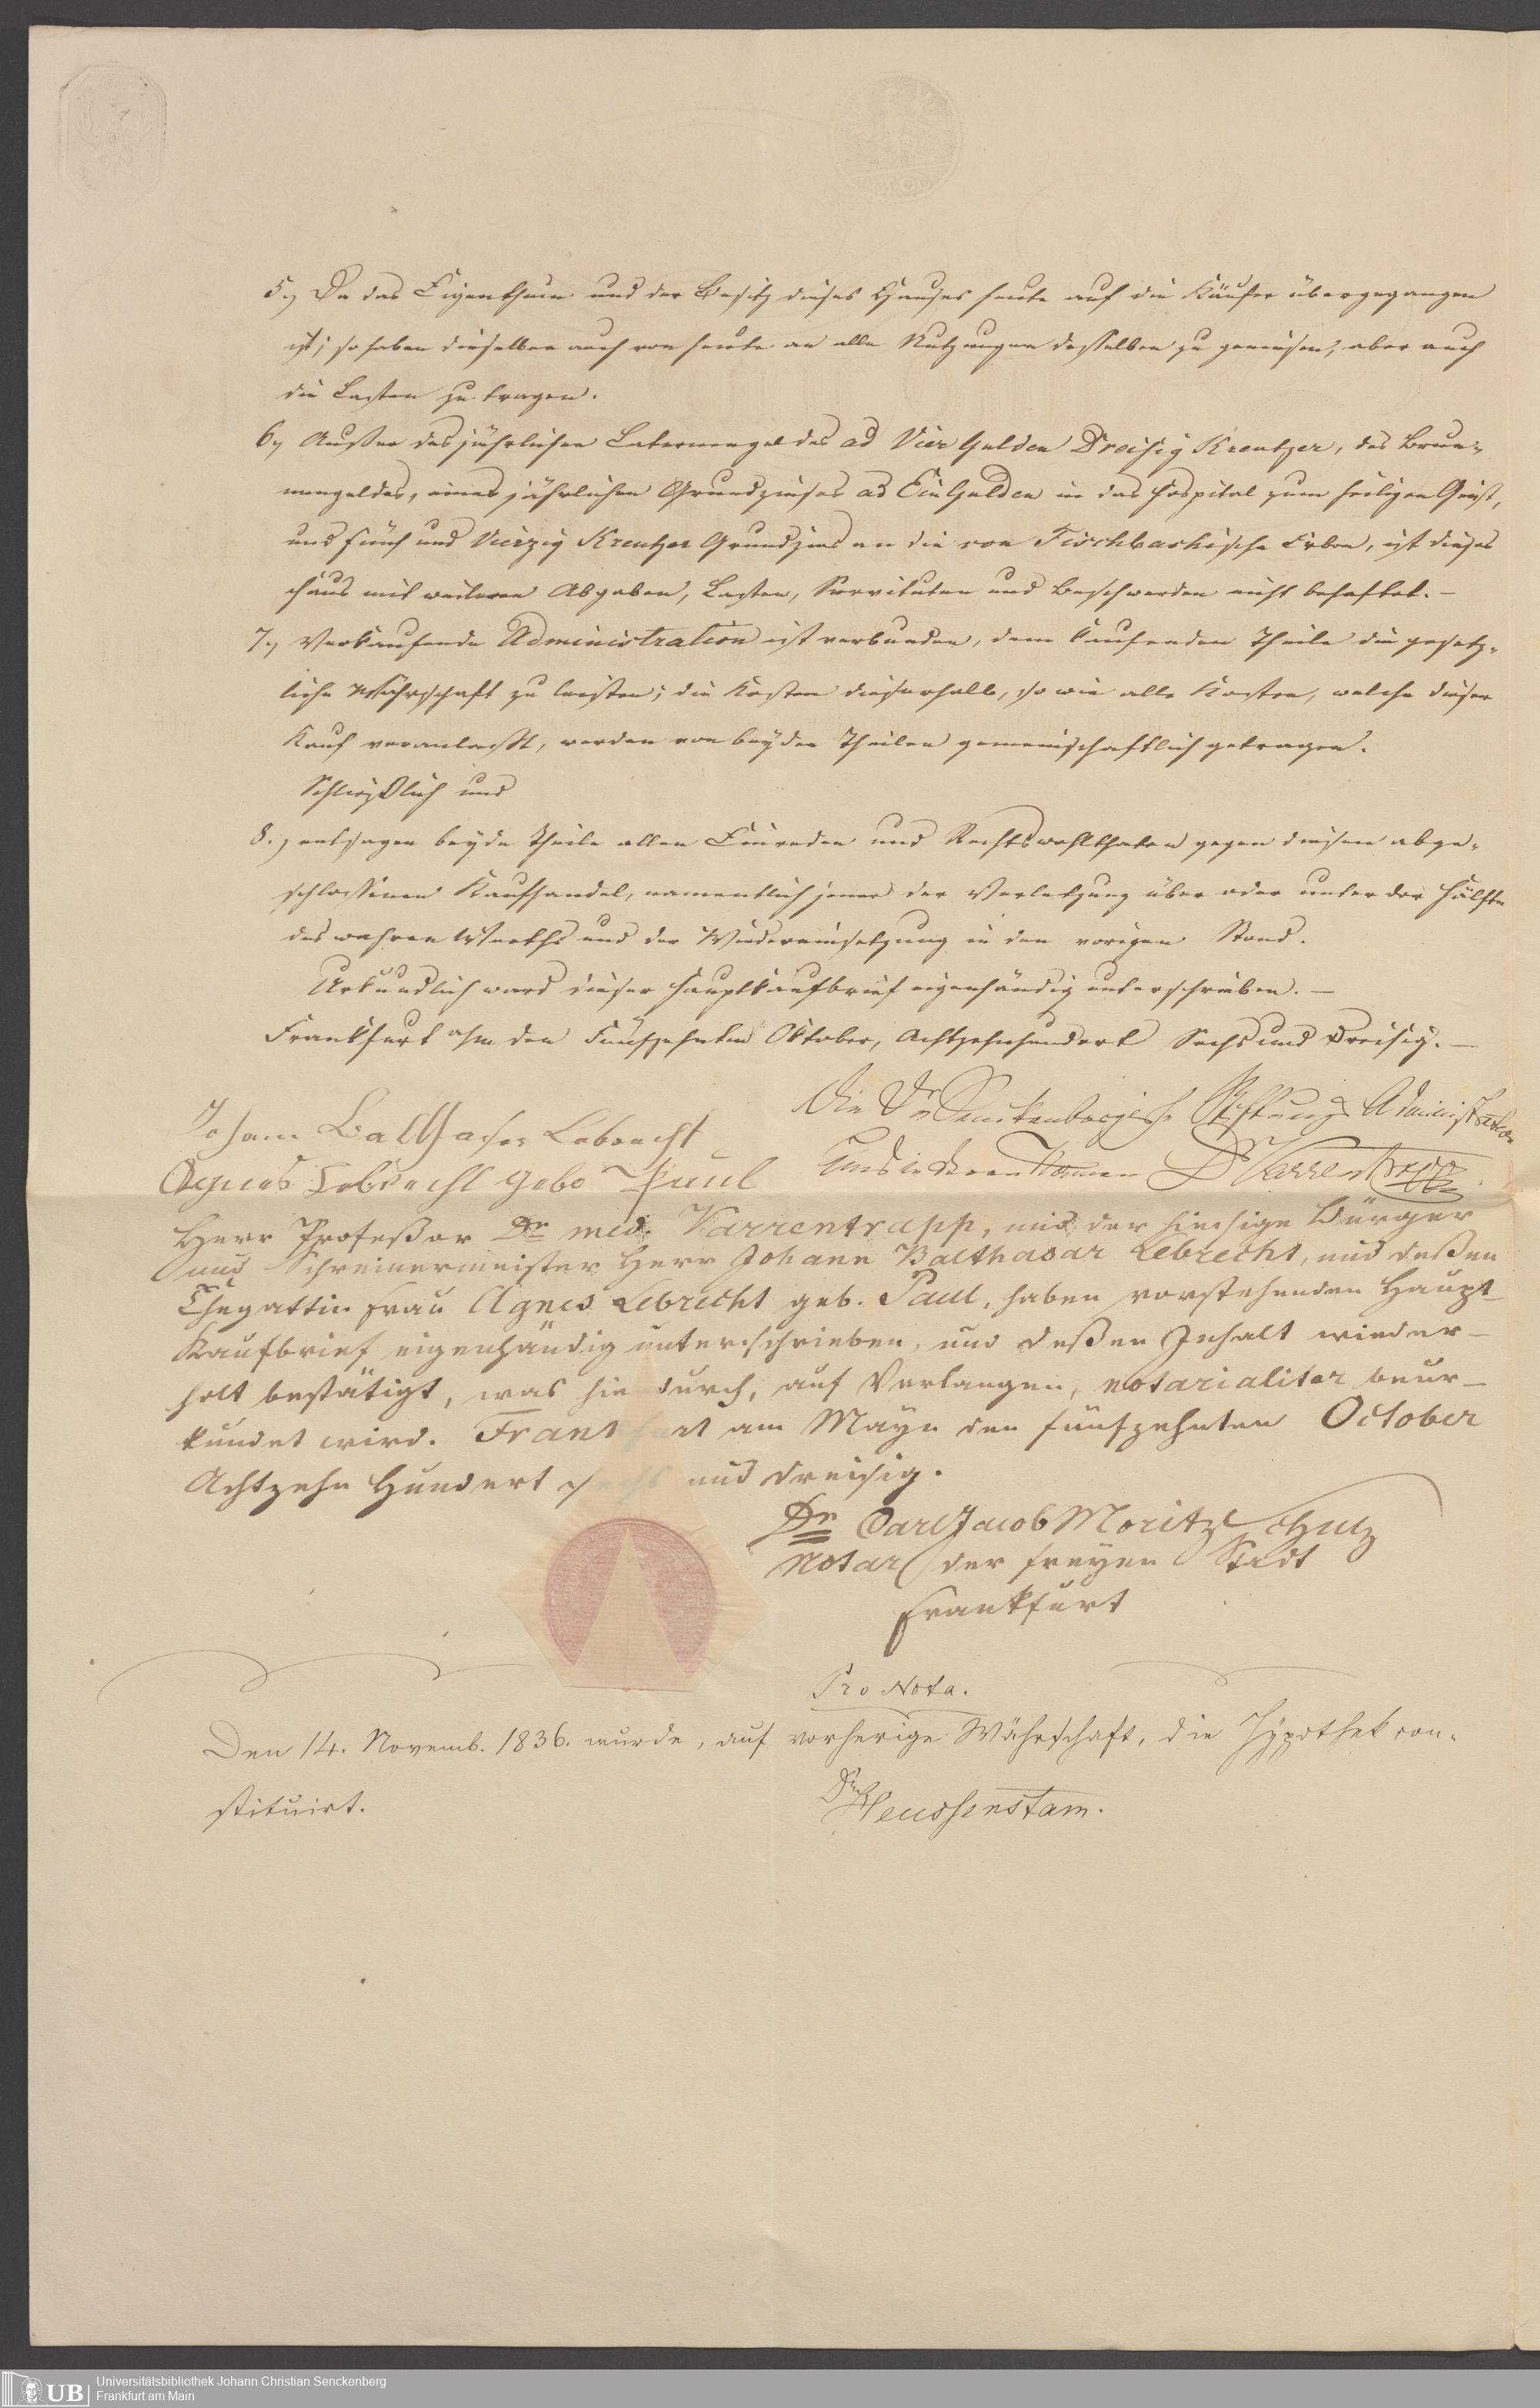 5.) Da das Eigenthum und der Besitz dieses Hauses heute auf die Käufer übergegangen
ist; so haben dieselben auch von heute an alle Nutzungen desselben zu geniesen, aber auch
die Lasten zu tragen.
6.) Außer des jährlichen Laternengeldes ad Vier Gulden Dreisig Kreutzer, des Brun-
nengeldes, eines jährlichen Grundzinses ad Ein Gulden in das Hospital zum heiligen Geist,
und fünf und Vierzig Kreutzer Grundzins an die von Fischbachische Erben, ist dieses
Haus mit weiteren Abgaben, Lasten, Servituten und Beschwerden nicht behaftet. —
7.) Verkaufende Administration ist verbunden, dem kaufenden Theile die gesetz-
liche Währschaft zu leisten; die Kosten dieserhalb, so wie alle Kosten, welche dieser
Kauf veranlaßt, werden von beyden Theilen gemeinschaftlich getragen.
Schließlich und
8.) entsagen beyde Theile allen Einreden und Rechtswohlthaten gegen diesen abge-
schlossenen Kaufhandel, namentlich jener der Verletzung über oder unter der Hälfte
des wahren Werths und der Wiedereinsetzung in den vorigen Stand.
Urkundlich ward dieser Hauptkaufbrief eigenhändig unterschrieben. —
Frankfurt a/m den Fünfzehnten Oktober, Achtzehnhundert Sechs und Dreisig. —
Die Dr Senckenbergische Stiftungs Administration
Johann Balthaser Lebrecht
und in deren Namen Dr Varrentrapp
Agnes Lebrecht gebo Paul
Herr Profeßor Dr med. Varrentrapp, und der hiesige Bürger
und Schreinermeister Herr Johann Balthasar Lebrecht, und deßen
Ehegattin Frau Agnes Lebrecht geb. Paul, haben vorstehenden Haupt-
Kaufbrief eigenhändig unterschrieben, und deßen Inhalt wieder-
holt bestätigt, was hiedurch, auf Verlangen, notarialiter beur-
kundet wird. Frankfurt am Mayn den fünfzehnten October
Achtzehn Hundert sechs und dreisig.
Dr Carl Jacob Moritz Schulz
Notar der freyen Stadt
Frankfurt
Pro Nota.
Den 14. Novemb. 1836. wurde, auf vorherige Währschaft, die Hypothek con-
stituirt.
Dr Heussenstam.
UB
Universitätsbibliothek Johann Christian Senckenberg
Frankfurt am Main